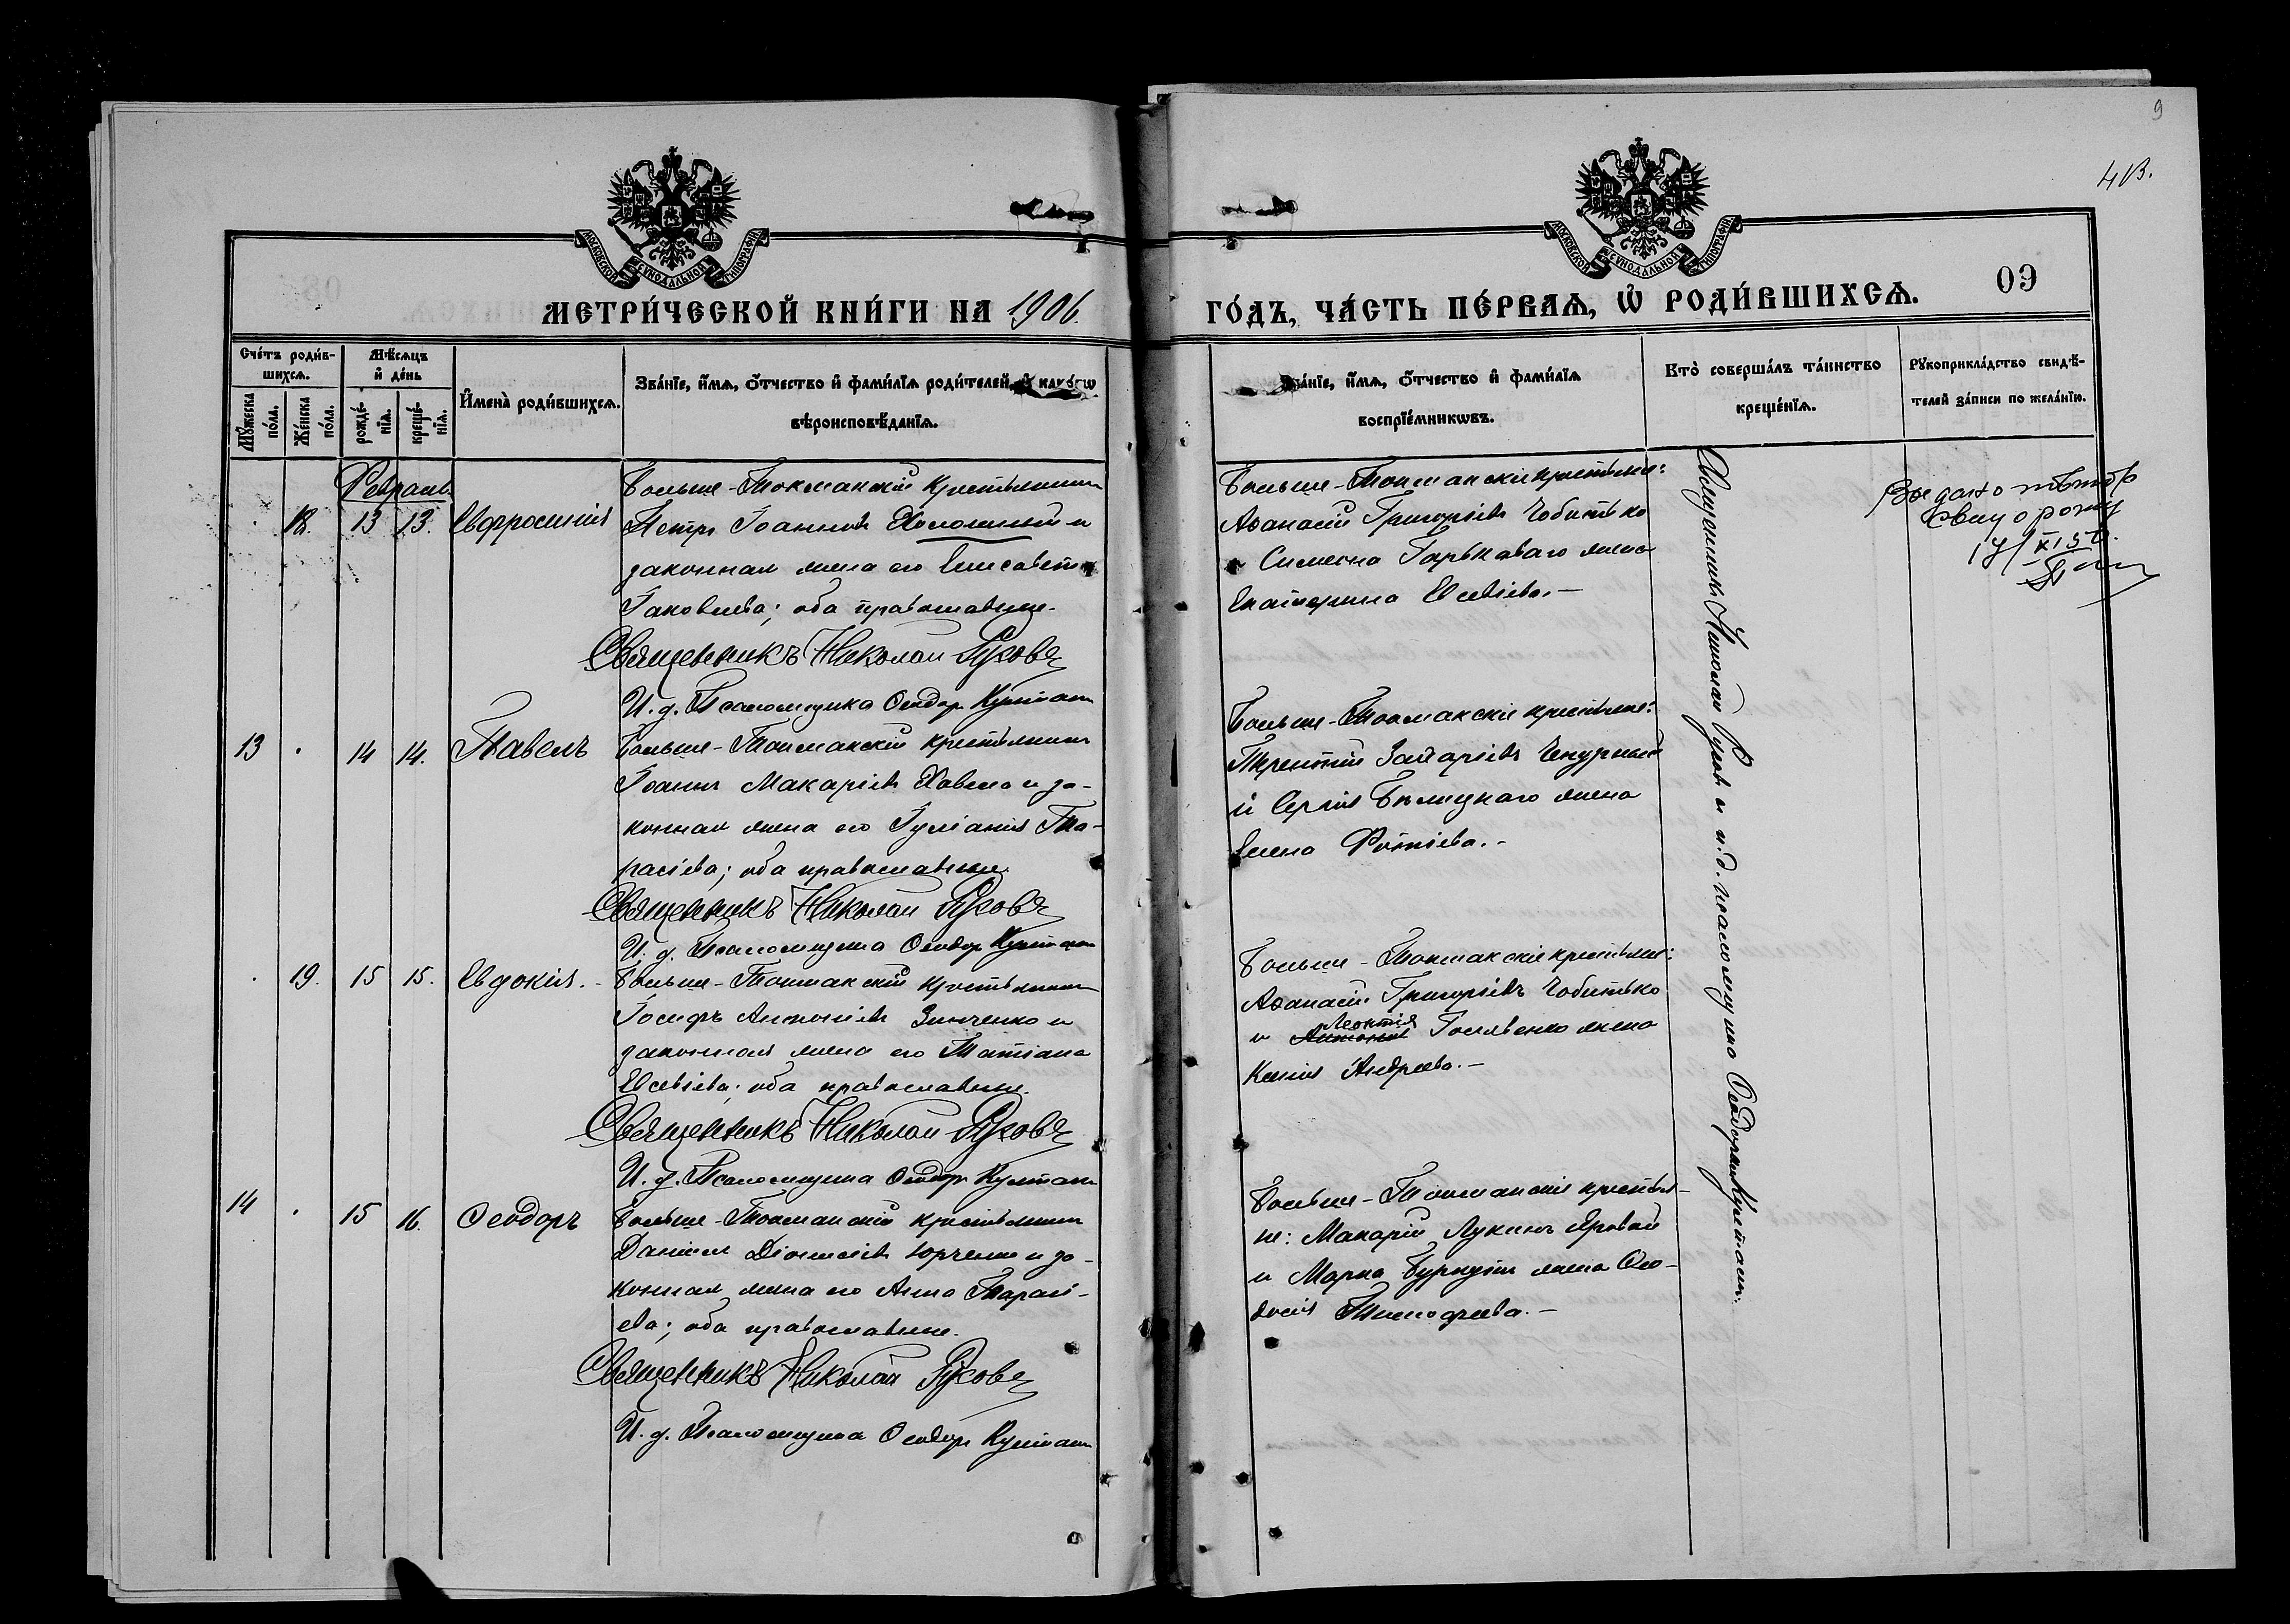 9
4 об.
МОСКОВСКОЙ СѴНОДАЛЬНОЙ ТИПОГРАФІИ
МОСКОВСКОЙ СѴНОДАЛЬНОЙ ТИПОГРАФІИ
МЕТРИ́ЧЕСКОЙ КНИ́ГИ НА 1906.
ГО́ДЪ, ЧА́СТЬ ПЕ́РВАѦ, Ѡ҆ РОДИ́ВШИХСѦ.
09
Сче́тъ роди́в-
шихсѧ.
Мꙋ́жеска
по́ла.
Же́нска
по́ла.
Мѣ́сѧцъ
и҆ де́нь
рожде́-
нїѧ.
креще́-
нїѧ.
И҆мена̀ роди́вшихсѧ.
Зва́нїе, и҆́мѧ, ѻ҆́тчество и҆ фами́лїѧ роди́телей, и҆ како́гѡ
вѣроисповѣ́данїѧ.
Зва́нїе, и҆́мѧ, ѻ҆́тчество и҆ фами́лїѧ
воспрїе́мникѡвъ.
Кто̀ соверша́лъ та́инство
креще́нїѧ.
Рꙋкоприкла́дство свидѣ́-
телей за́писи по жела́нїю.
Февраль
18. 13 13. Евфросинія
Больше-Токмакскій крестьянинъ
Петръ Іоанновъ и
законная жена его Елисавета
Іаковлева; оба православные.
Священникъ Николай Руковъ
И. д. Псаломщика Ѳеодоръ
Больше-Токмакскіе крестьяне:
Аѳанасій Григорьевъ Чобитько
и Симеона Гарьковаго жена
Екатерина Евсевіева.-
Священникъ Николай Руковъ и и.д. псаломщика Ѳеодоръ
Выдано повтор
Свид о рожд
17/XI 50.
13 14 14. Павелъ
Больше-Токмакскій крестьянинъ
Іоаннъ Макаріевъ и за-
конная жена его Іуліанія Та-
расіева; оба православные.
Священникъ Николай Руковъ
И. д. Псаломщика Ѳеодоръ
Больше-Токмакскіе крестьяне:
Терентій Захаріевъ Чепурный
и Сергія Бѣлецкаго жена
Елена Фотіева.-
19. 15 15. Евдокія.-
Больше-Токмакскій крестьянинъ
Іосифъ Антоніевъ Зинченко и
законная жена его Татіана
Евсевіева; оба православные.
Священникъ Николай Руковъ
И. д. Псаломщика Ѳеодоръ
Больше-Токмакскіе крестьяне:
Аѳанасій Григорьевъ Чобитько
Леонтія
и жена
Ксенія Андреева.-
14 15 16. Ѳеодоръ
Больше-Токмакскій крестьянинъ
Даніилъ Діонисіевъ Юрченко и за-
конная жена его Анна Тарасі-
ева; оба православные.
Священникъ Николай Руковъ
И. д. Псаломщика Ѳеодоръ
Больше-Токмакскіе крестья-
не: Макарій Лукинъ Яровой
и Марка жена Ѳео-
досія Тимофеева.-